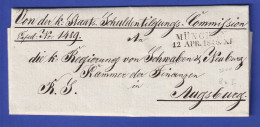 Von der k. Staats Schuldentilgungs-Commission
Exped. Nr. 1419.
An
MÜNCHEN
12 APR. 18
die k. Regierung von Schwaben & Neuburg
Kammer der Finanzen
R. S.
Augsburg